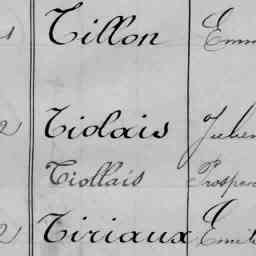 Tillon Emm
2 Tiolais Julien
Tiollais Prosper
2 Tiriaux Emile